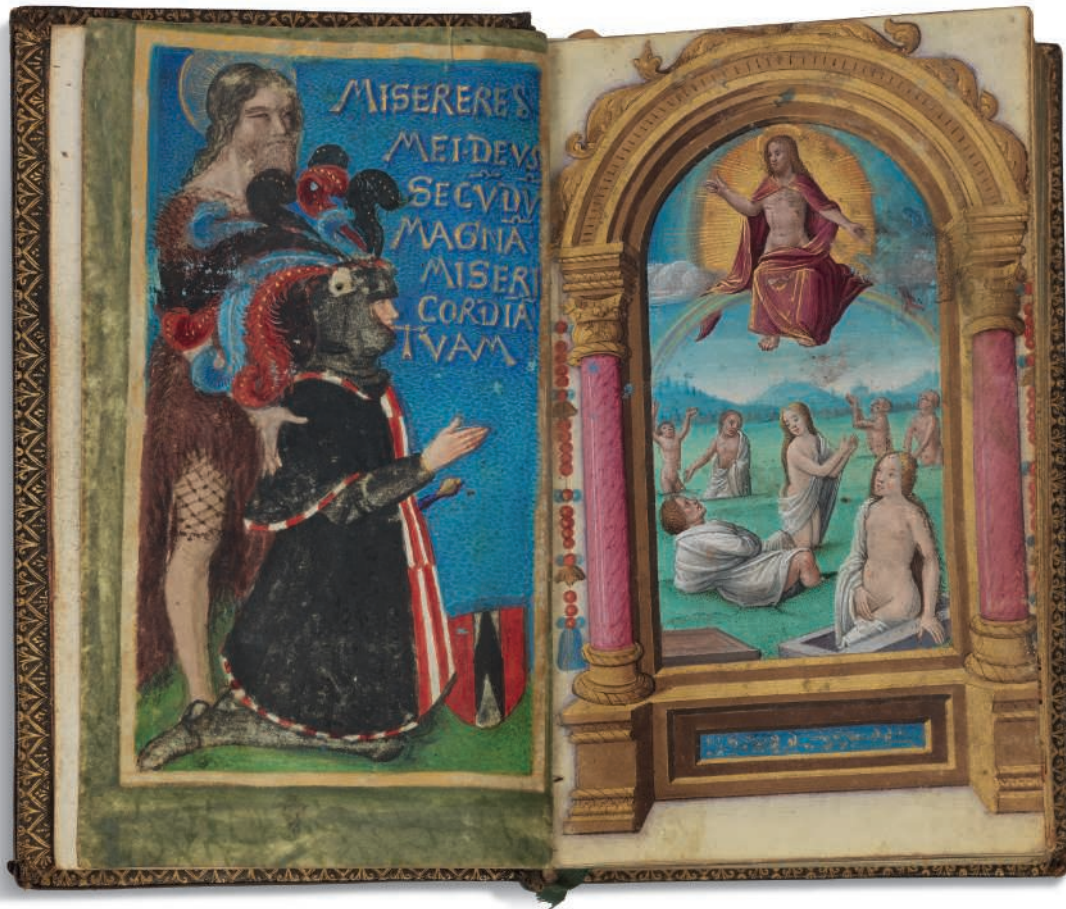 MISERERE
MEI·DEVS
SECV̄DV̄
MAGNĀ
MISERI
CORDIĀ
TVAM